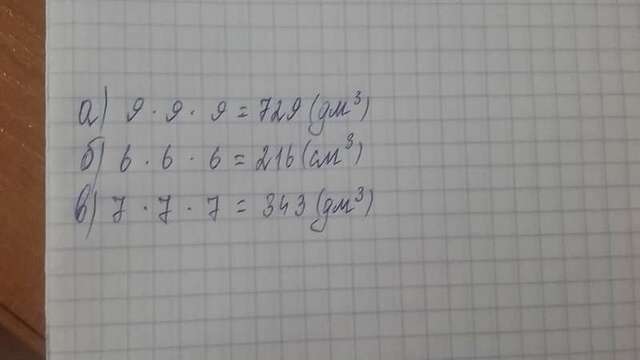 а) 9 · 9 · 9 = 729 (дм³)
б) 6 · 6 · 6 = 216 (см³)
в) 7 · 7 · 7 = 343 (дм³)